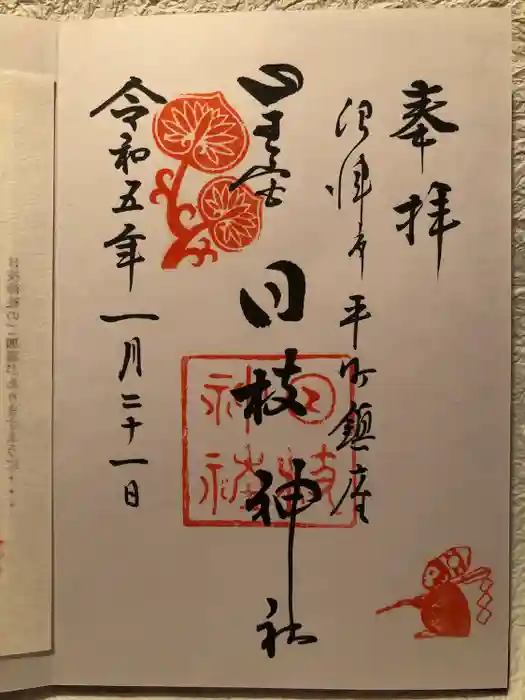 奉拝
沼津市平町鎮座
山王宮
日枝神社
令和五年一月二十一日
日枝
神社